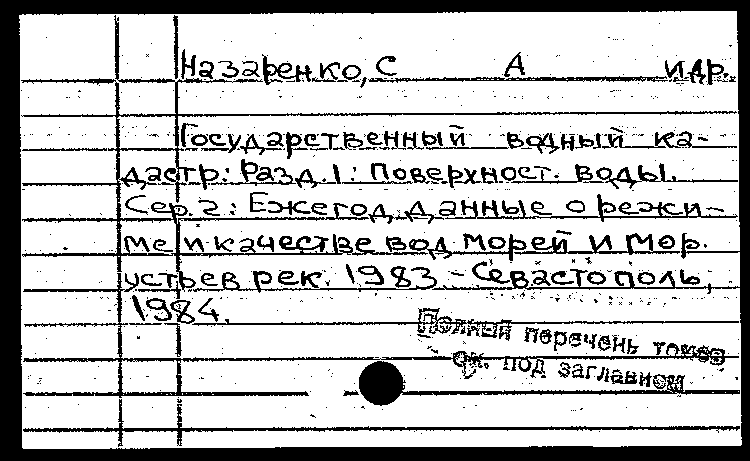 Назаренко, С А и др.
Государственный водный ка-
дастр: Разд. 1: Поверхност. воды.
Сер. 2: Ежегод. данные о режи-
ме и качестве вод морей и мор.
устьев рек. 1983 - Севастополь,
1984.
Полный перечень томов
см. под заглавием